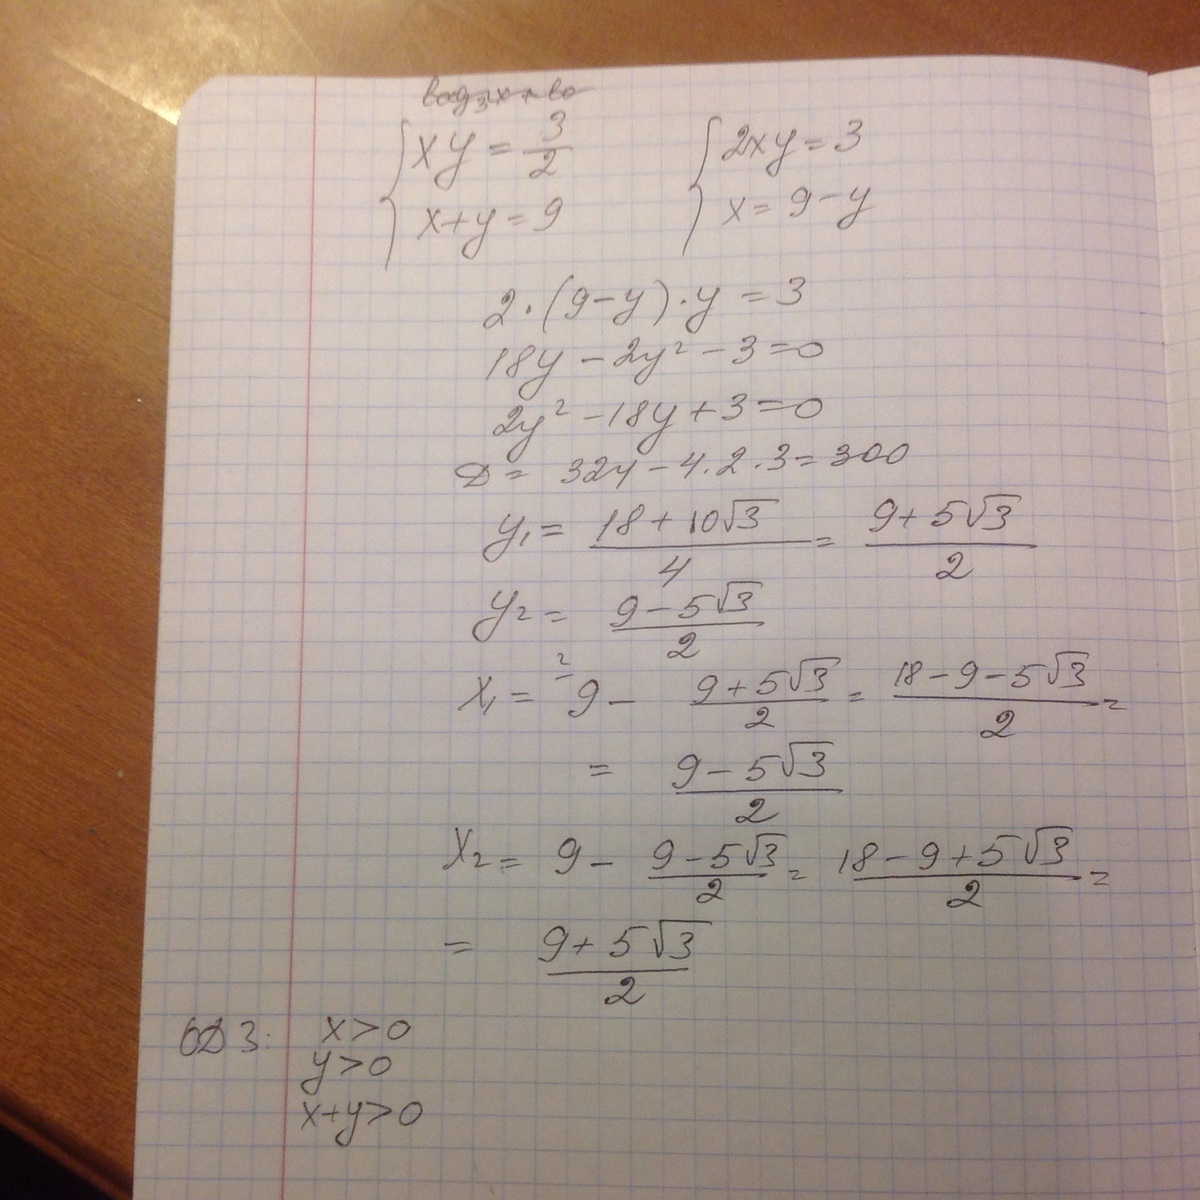 xy = 3/2    2xy = 3
x+y = 9    x = 9-y
2·(9-y)·y = 3
18y - 2y² - 3 = 0
2y² - 18y + 3 = 0
D = 324 - 4·2·3 = 300
y₁ = (18 + 10√3)/4 = (9 + 5√3)/2
y₂ = (9 - 5√3)/2
x₁ = 9 - (9 + 5√3)/2 = (18 - 9 - 5√3)/2 =
= (9 - 5√3)/2
x₂ = 9 - (9 - 5√3)/2 = (18 - 9 + 5√3)/2 =
= (9 + 5√3)/2
ОДЗ: x > 0
y > 0
x+y > 0